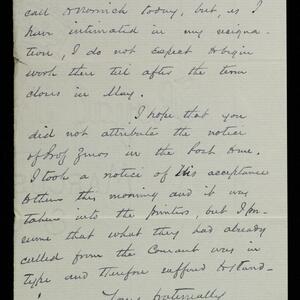 call to Norwich today, but, as I
have intimated in my resigna-
tion, I do not expect to begin
work there till after the term
closes in May.
I hope that you
did not attribute the notice
of Prof in the
I took a notice of his acceptance
this morning and it was
taken into the printers, but I pre
sume that what they had already
culled from the Courant was in
type and therefore suffered to stand-
Yours fraternally